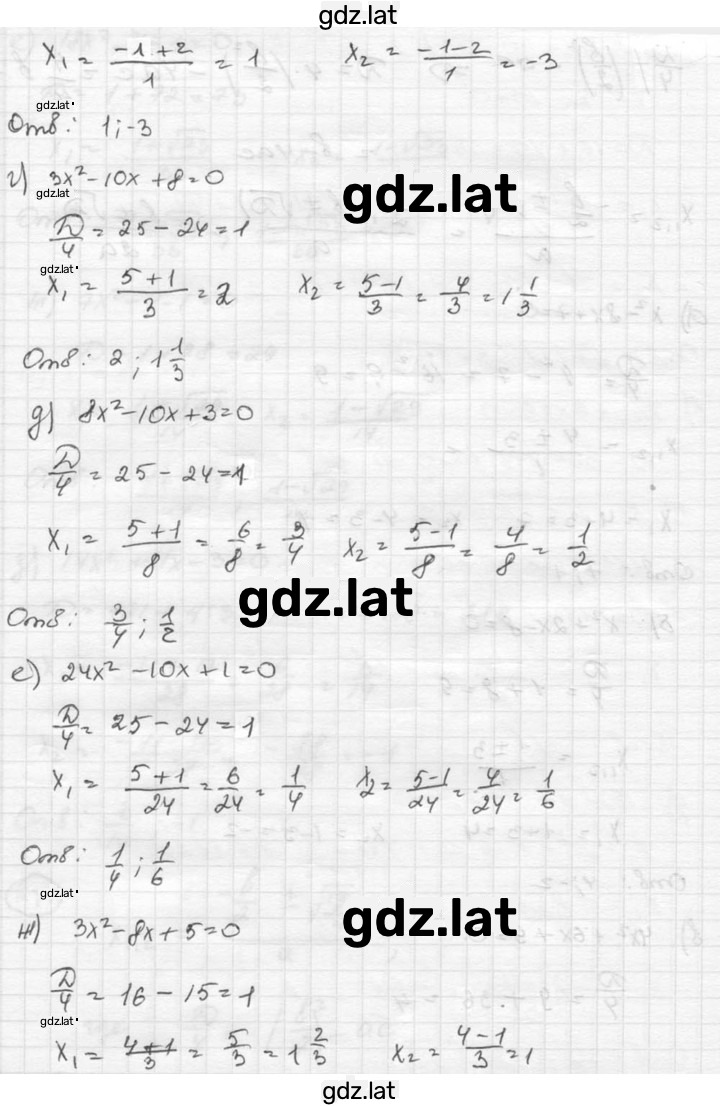 gdz.lat
x₁ = (-1+2)/1 = 1    x₂ = (-1-2)/1 = -3
gdz.lat
Отв: 1; -3
г) 3x² - 10x + 8 = 0
gdz.lat
gdz.lat
D/4 = 25 - 24 = 1
gdz.lat
x₁ = (5+1)/3 = 2    x₂ = (5-1)/3 = 4/3 = 1 1/3
Отв: 2; 1 1/3
д) 8x² - 10x + 3 = 0
D/4 = 25 - 24 = 1
x₁ = (5+1)/8 = 6/8 = 3/4    x₂ = (5-1)/8 = 4/8 = 1/2
gdz.lat
Отв: 3/4; 1/2
е) 24x² - 10x + 1 = 0
D/4 = 25 - 24 = 1
x₁ = (5+1)/24 = 6/24 = 1/4    x₂ = (5-1)/24 = 4/24 = 1/6
Отв: 1/4; 1/6
gdz.lat
gdz.lat
ж) 3x² - 8x + 5 = 0
D/4 = 16 - 15 = 1
gdz.lat
x₁ = (4+1)/3 = 5/3 = 1 2/3    x₂ = (4-1)/3 = 1
gdz.lat